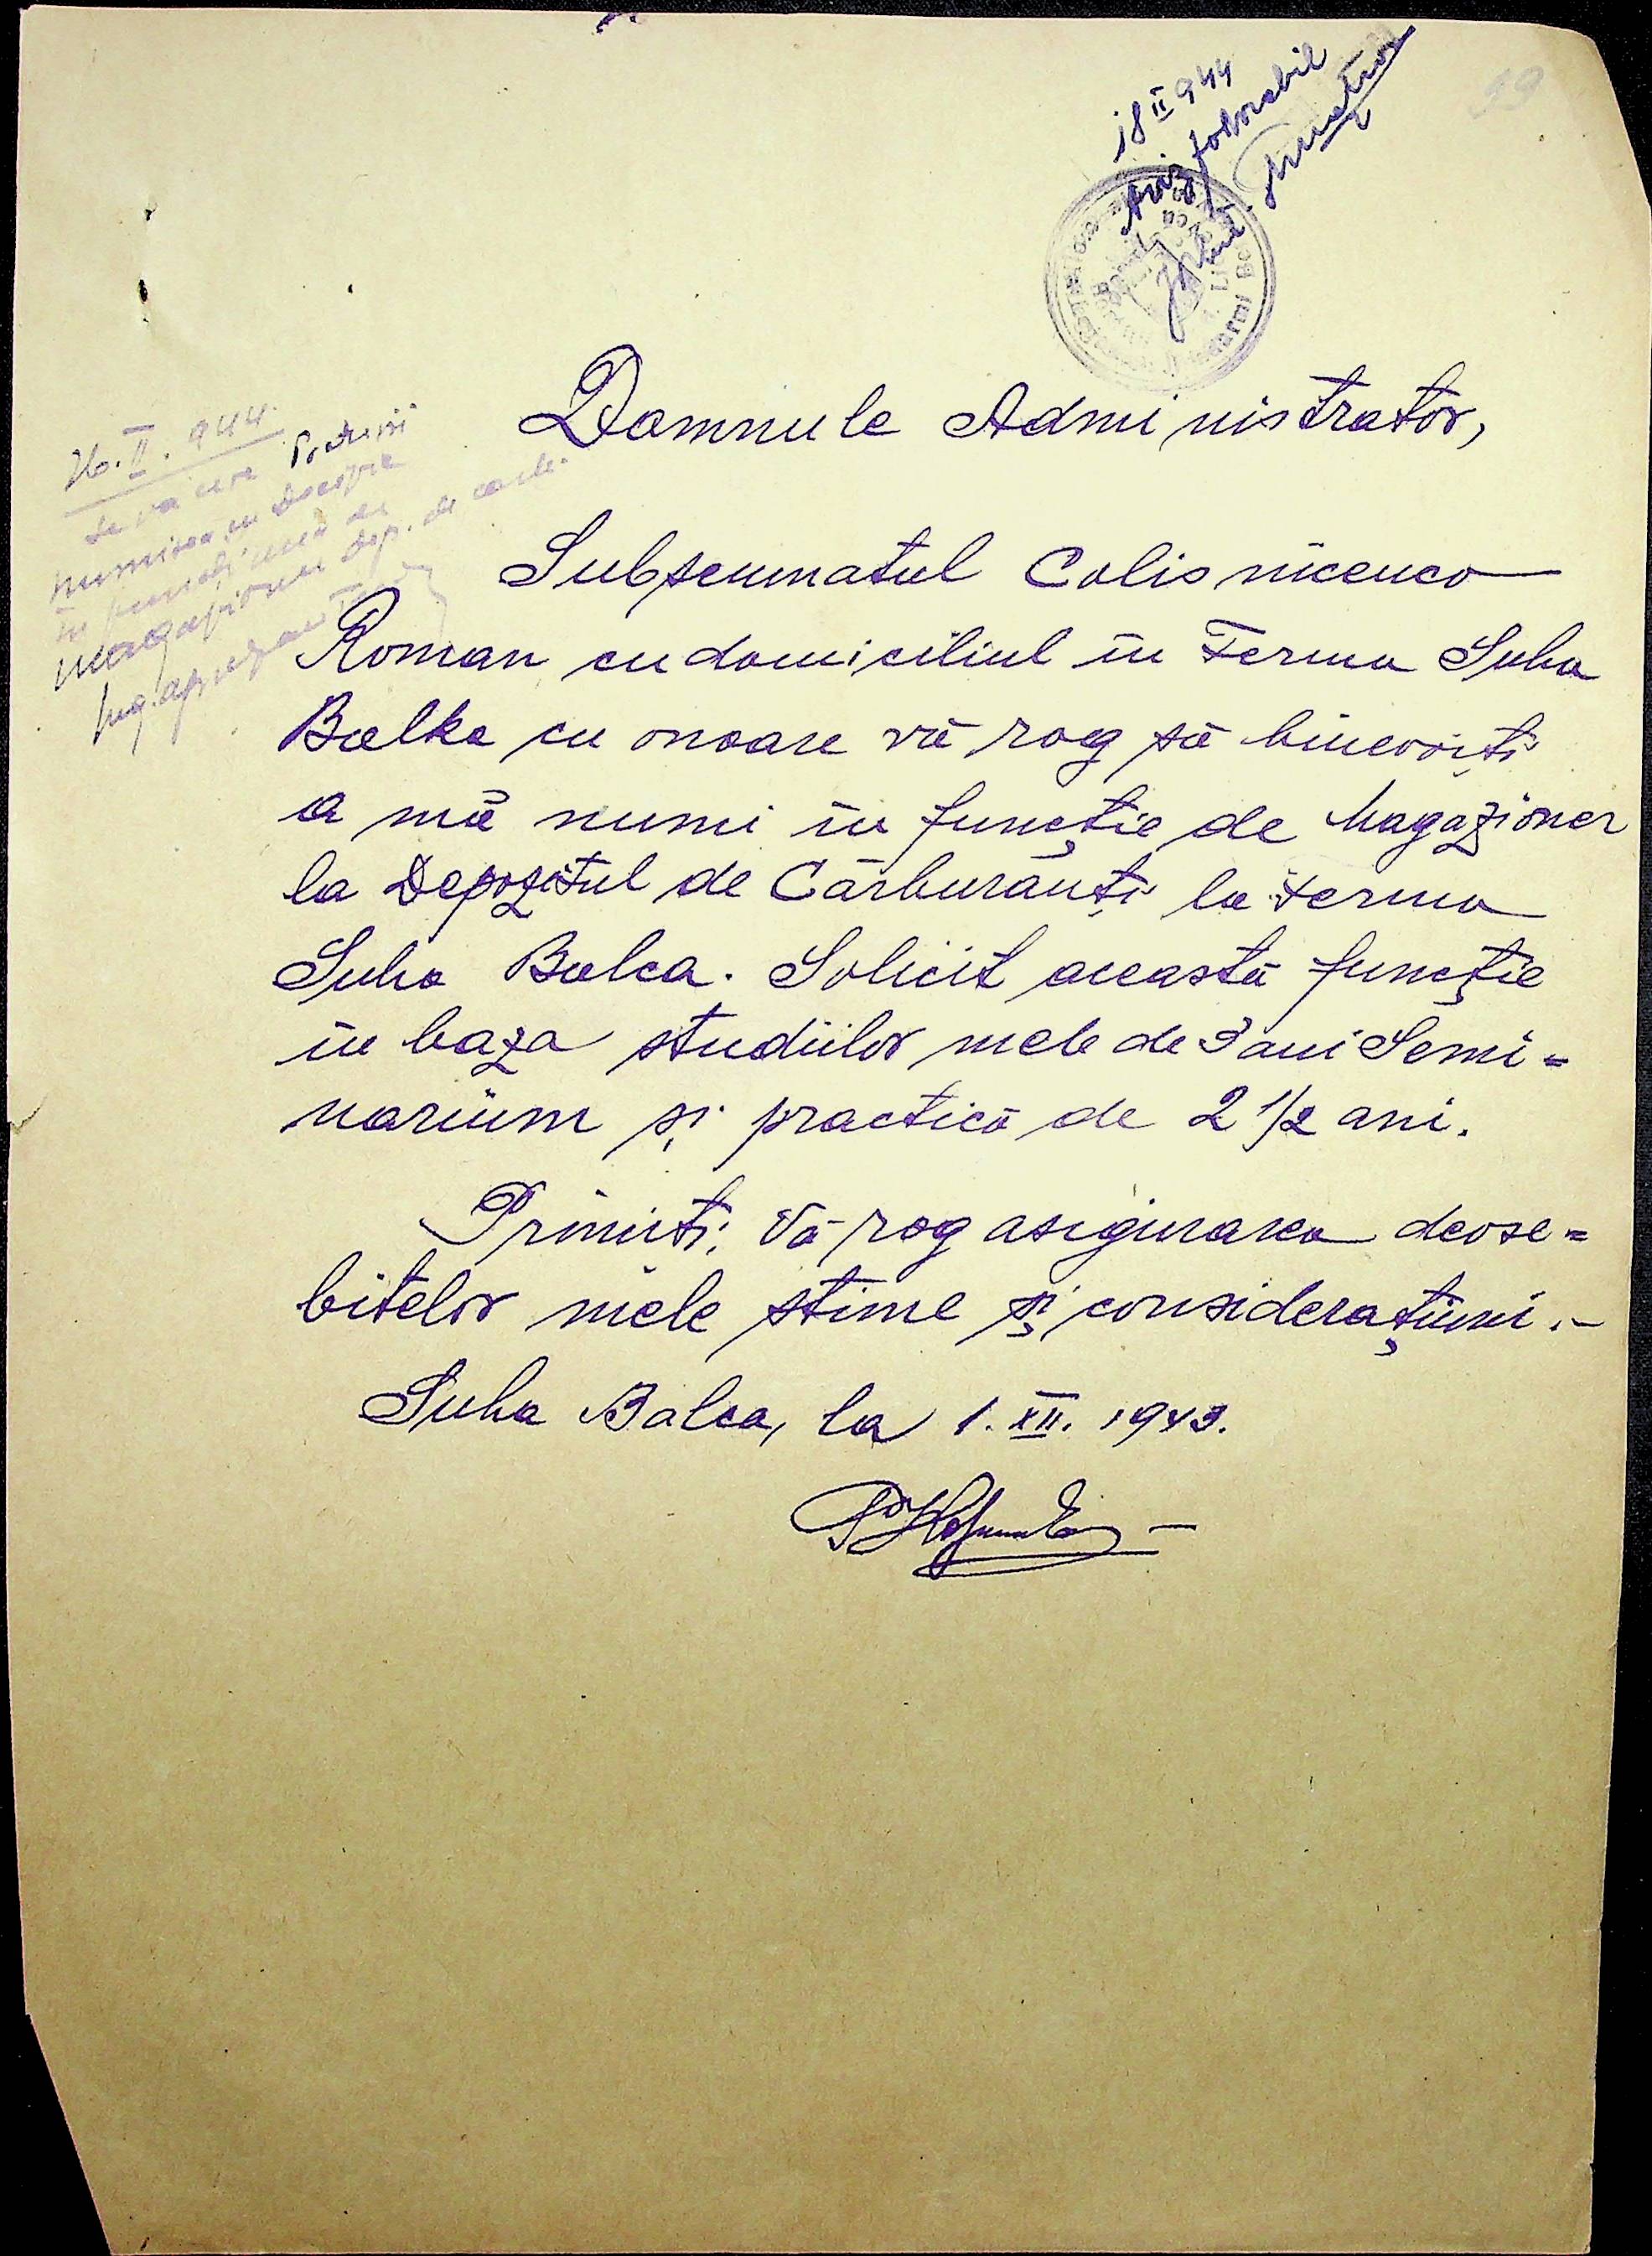 99
18 II 944
Aviz favorabil
26.II.944.
Se va cere Prefecturii
numirea
în
magazioner dep. de carb.
Ing. agr.
Domnule Administrator,
Subsemnatul Colisnicenco
Roman cu domiciliul în Ferma Suha
Balka cu onoare vă rog să binevoiți
a mă numi în funcție de Magazioner
la Depozitul de Cărburanți la ferma
Suha Balca. Solicit această funcție
în baza studiilor mele de 3 ani Semi=
narium și practică de 2 1/2 ani.
Primiți, Vă rog asigurarea deose=
bitelor mele stime și considerațiuni.-
Suha Balca, la 1.XII.1943.